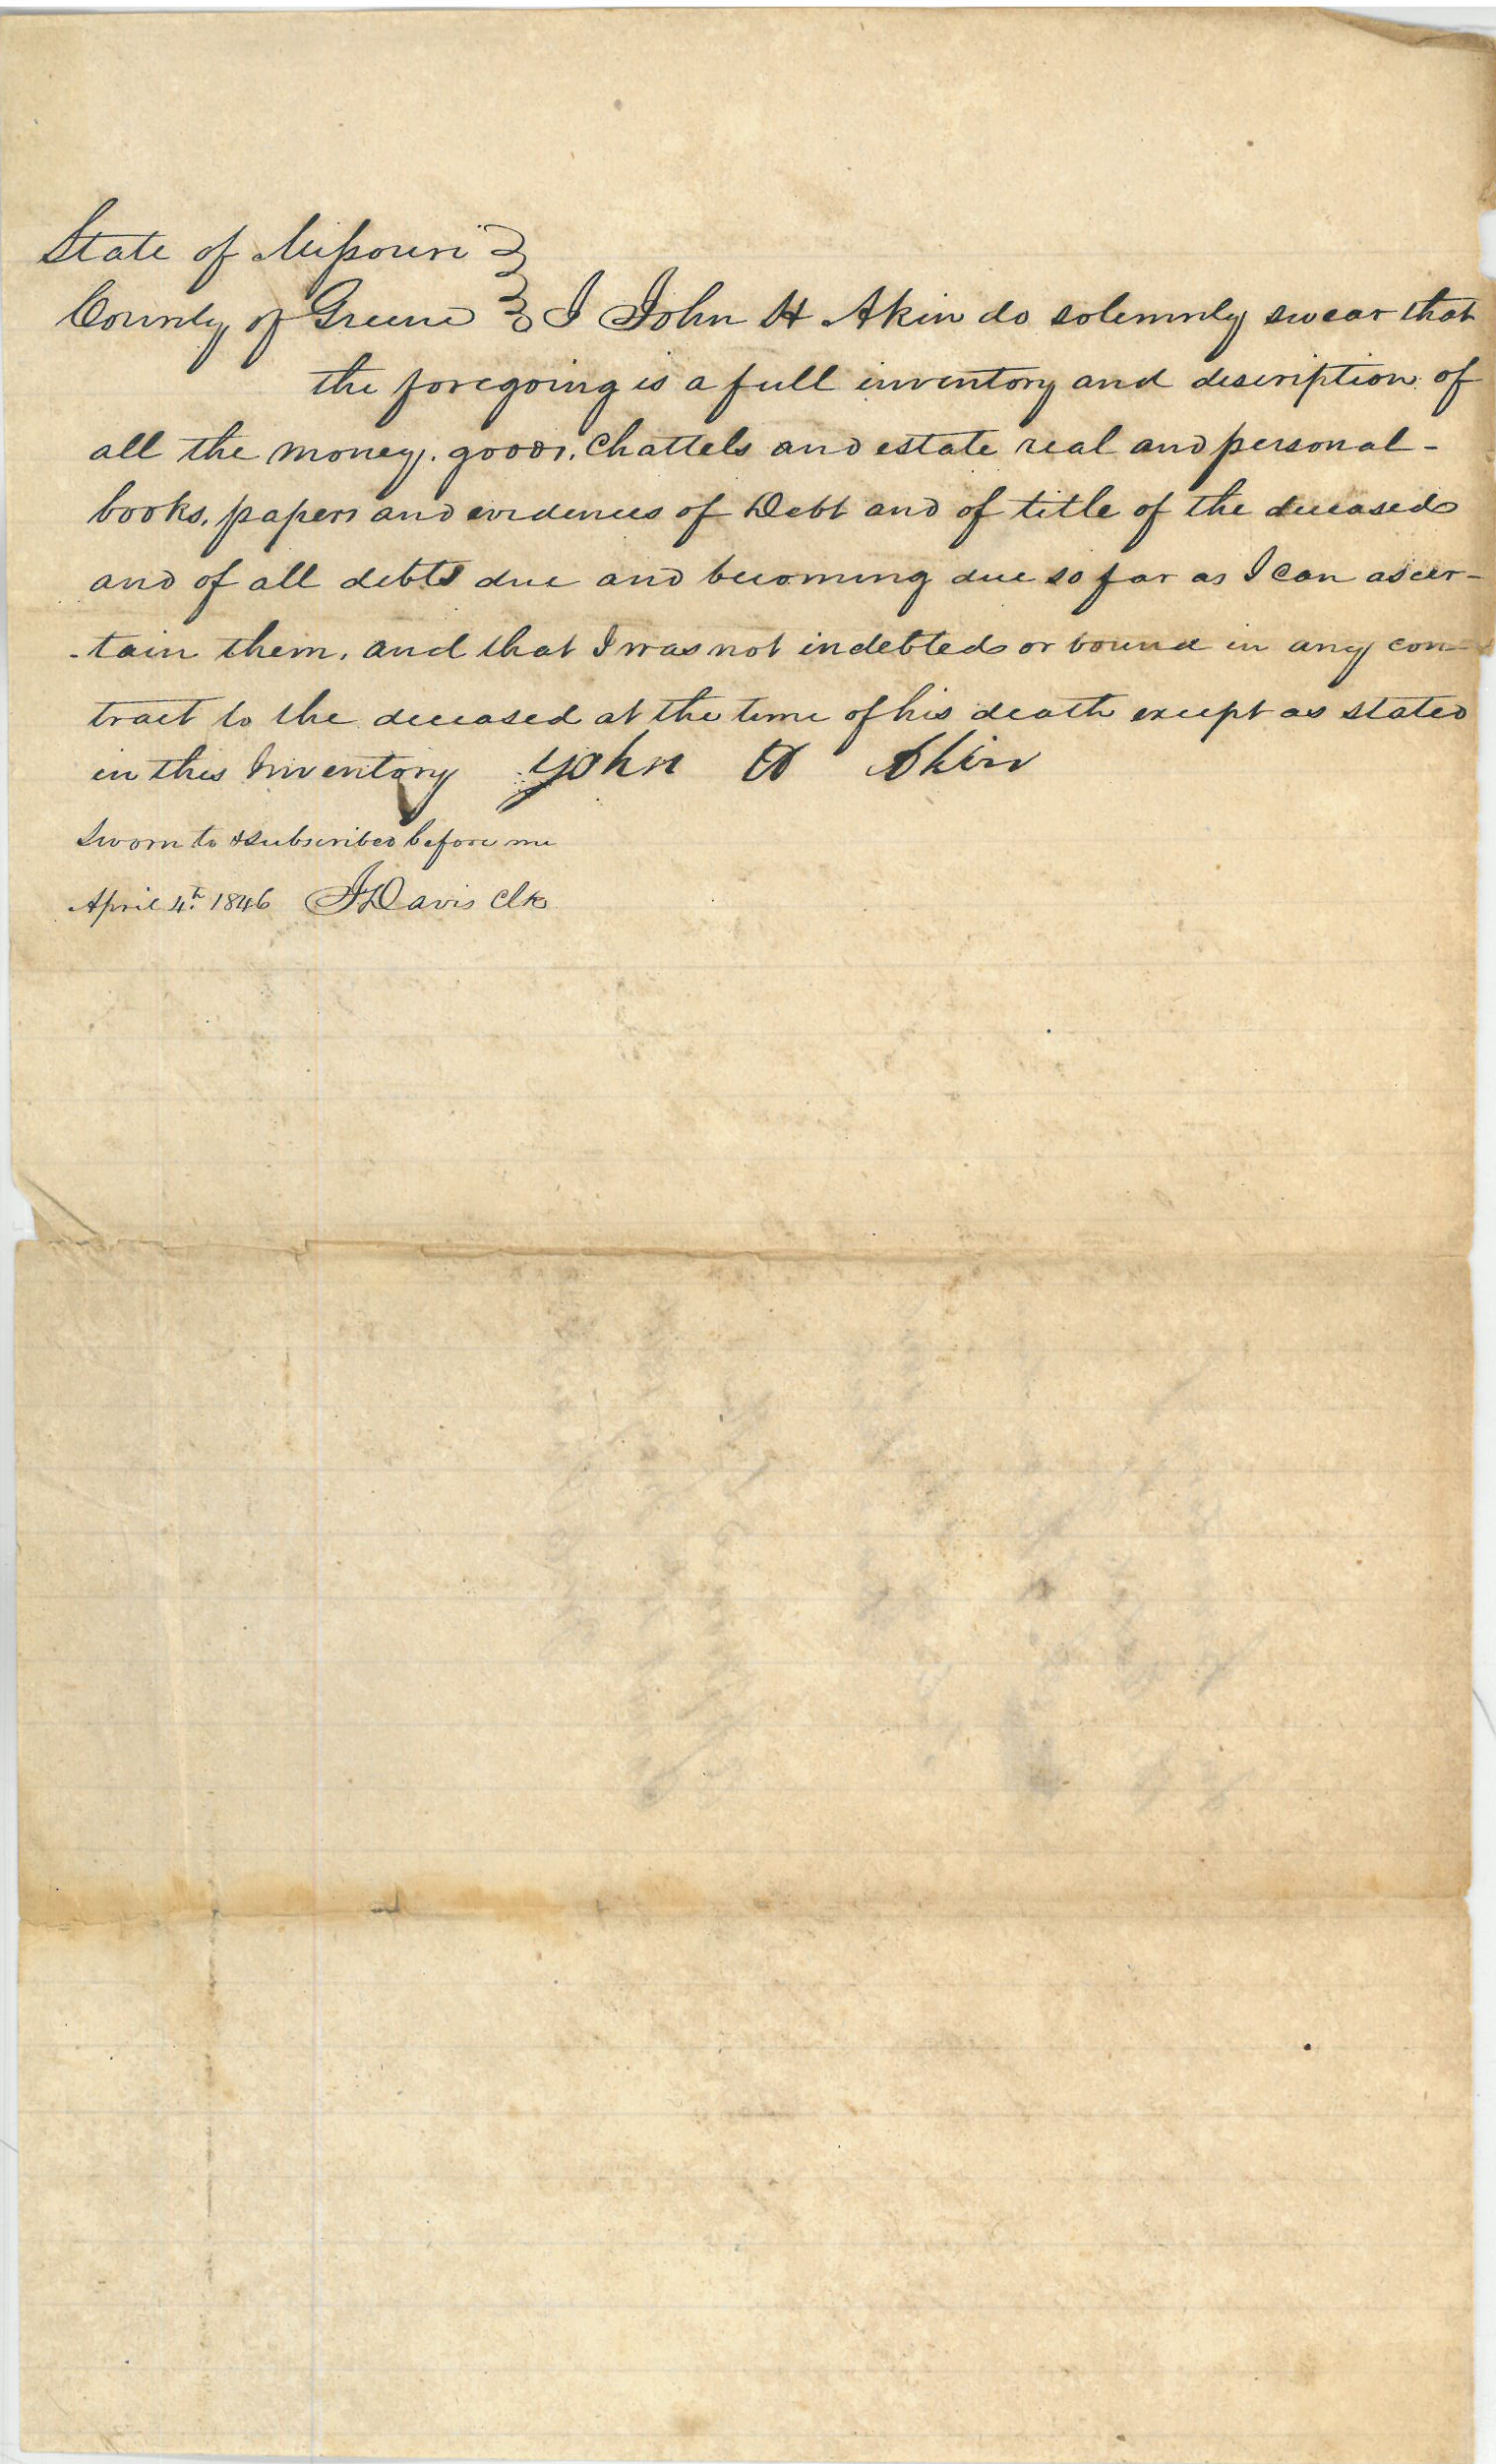 State of Missouri
County of Greene } I John H Akin do solemnly swear that
the foregoing is a full inventory and description of
all the money. goods. Chattels and estate real and personal -
books, papers and evidences of Debt and of title of the deceased
and of all debts due and becoming due so far as I can ascer-
-tain them, and that I was not indebted or bound in any con-
tract to the deceased at the time of his death except as stated
in this Inventory John H Akin
Sworn to & subscribed before me
April 4th 1846 J Davis Clk